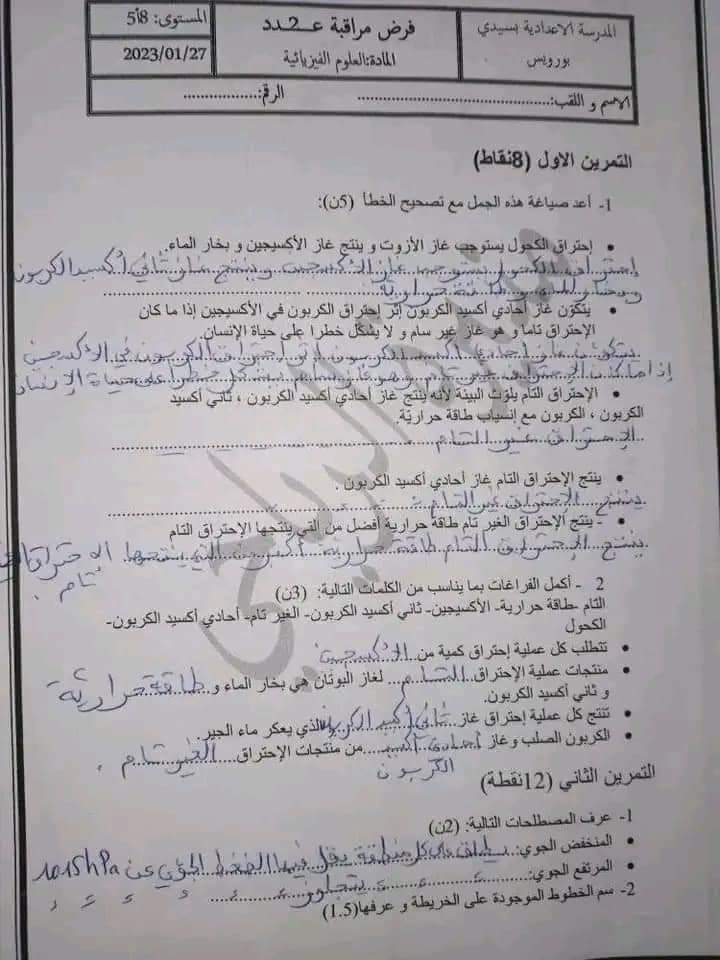 المدرسة الاعدادية بسيدي بورويس
فرض مراقبة عـ2ـدد
المادة:العلوم الفيزيائية
المستوى: 8أ5
2023/01/27
الاسم و اللقب:................................ الرقم:.................
التمرين الاول (8نقاط)
1- أعد صياغة هذه الجمل مع تصحيح الخطأ (5ن):
• إحتراق الكحول يستوجب غاز الأزوت و ينتج غاز الأكسيجين و بخار الماء.
إحتراق الكحول يستوجب غاز الأكسجين وينتج غاز ثاني أكسيد الكربون
وبخار الماء وطاقة حرارية
• يتكوّن غاز أحادي أكسيد الكربون إثر إحتراق الكربون في الأكسيجين إذا ما كان
الإحتراق تاما و هو غاز غير سام و لا يشكّل خطرا على حياة الإنسان.
يتكون غاز أحادي أكسيد الكربون إثر إحتراق الكربون في الأكسجين
إذا ما كان الإحتراق غير تام وهو غاز سام يشكل خطر على حياة الإنسان
• الإحتراق التام يلوّث البيئة لأنه ينتج غاز أحادي أكسيد الكربون ، ثاني أكسيد
الكربون ، الكربون مع إنسياب طاقة حراريّة.
الإحتراق غير التام
• ينتج الإحتراق التام غاز أحادي أكسيد الكربون .
ينتج الإحتراق غير التام
• - ينتج الإحتراق الغير تام طاقة حرارية أفضل من التي ينتجها الإحتراق التام
ينتج الإحتراق التام طاقة حرارية أكبر من التي ينتجها الاحتراق الغير
تام.
2 - أكمل الفراغات بما يناسب من الكلمات التالية: (3ن)
التام -طاقة حرارية- الأكسيجين- ثاني أكسيد الكربون- الغير تام- أحادي أكسيد الكربون-
الكحول
• تتطلب كل عملية إحتراق كمية من الأكسجين
• منتجات عملية الإحتراق التام لغاز البوتان هي بخار الماء و طاقة حرارية
و ثاني أكسيد الكربون.
• تنتج كل عملية إحتراق غاز ثاني أكسيد الكربون الذي يعكر ماء الجير.
• الكربون الصلب و غاز أحادي أكسيد الكربون من منتجات الإحتراق الغير تام .
التمرين الثاني (12نقطة)
1- عرف المصطلحات التالية: (2ن)
• المنخفض الجوي: يطلق على كل منطقة يقل فيها الضغط الجوي عن 1015hPa
• المرتفع الجوي: يتجاوز
2- سم الخطوط الموجودة على الخريطة و عرفها(1.5)